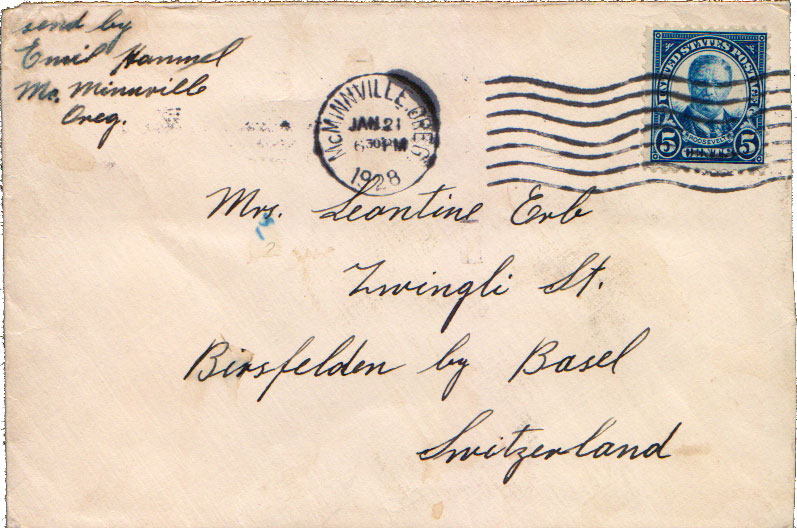 send by
Emil Hammel
Mc. Minnville
Oreg.
McMINNVILLE, OREG.
JAN 21
6 30 PM
1928
UNITED STATES POSTAGE
ROOSEVELT
5 CENTS 5
Mrs. Leontine Erb
Zwingli St.
Birsfelden by Basel
Switzerland